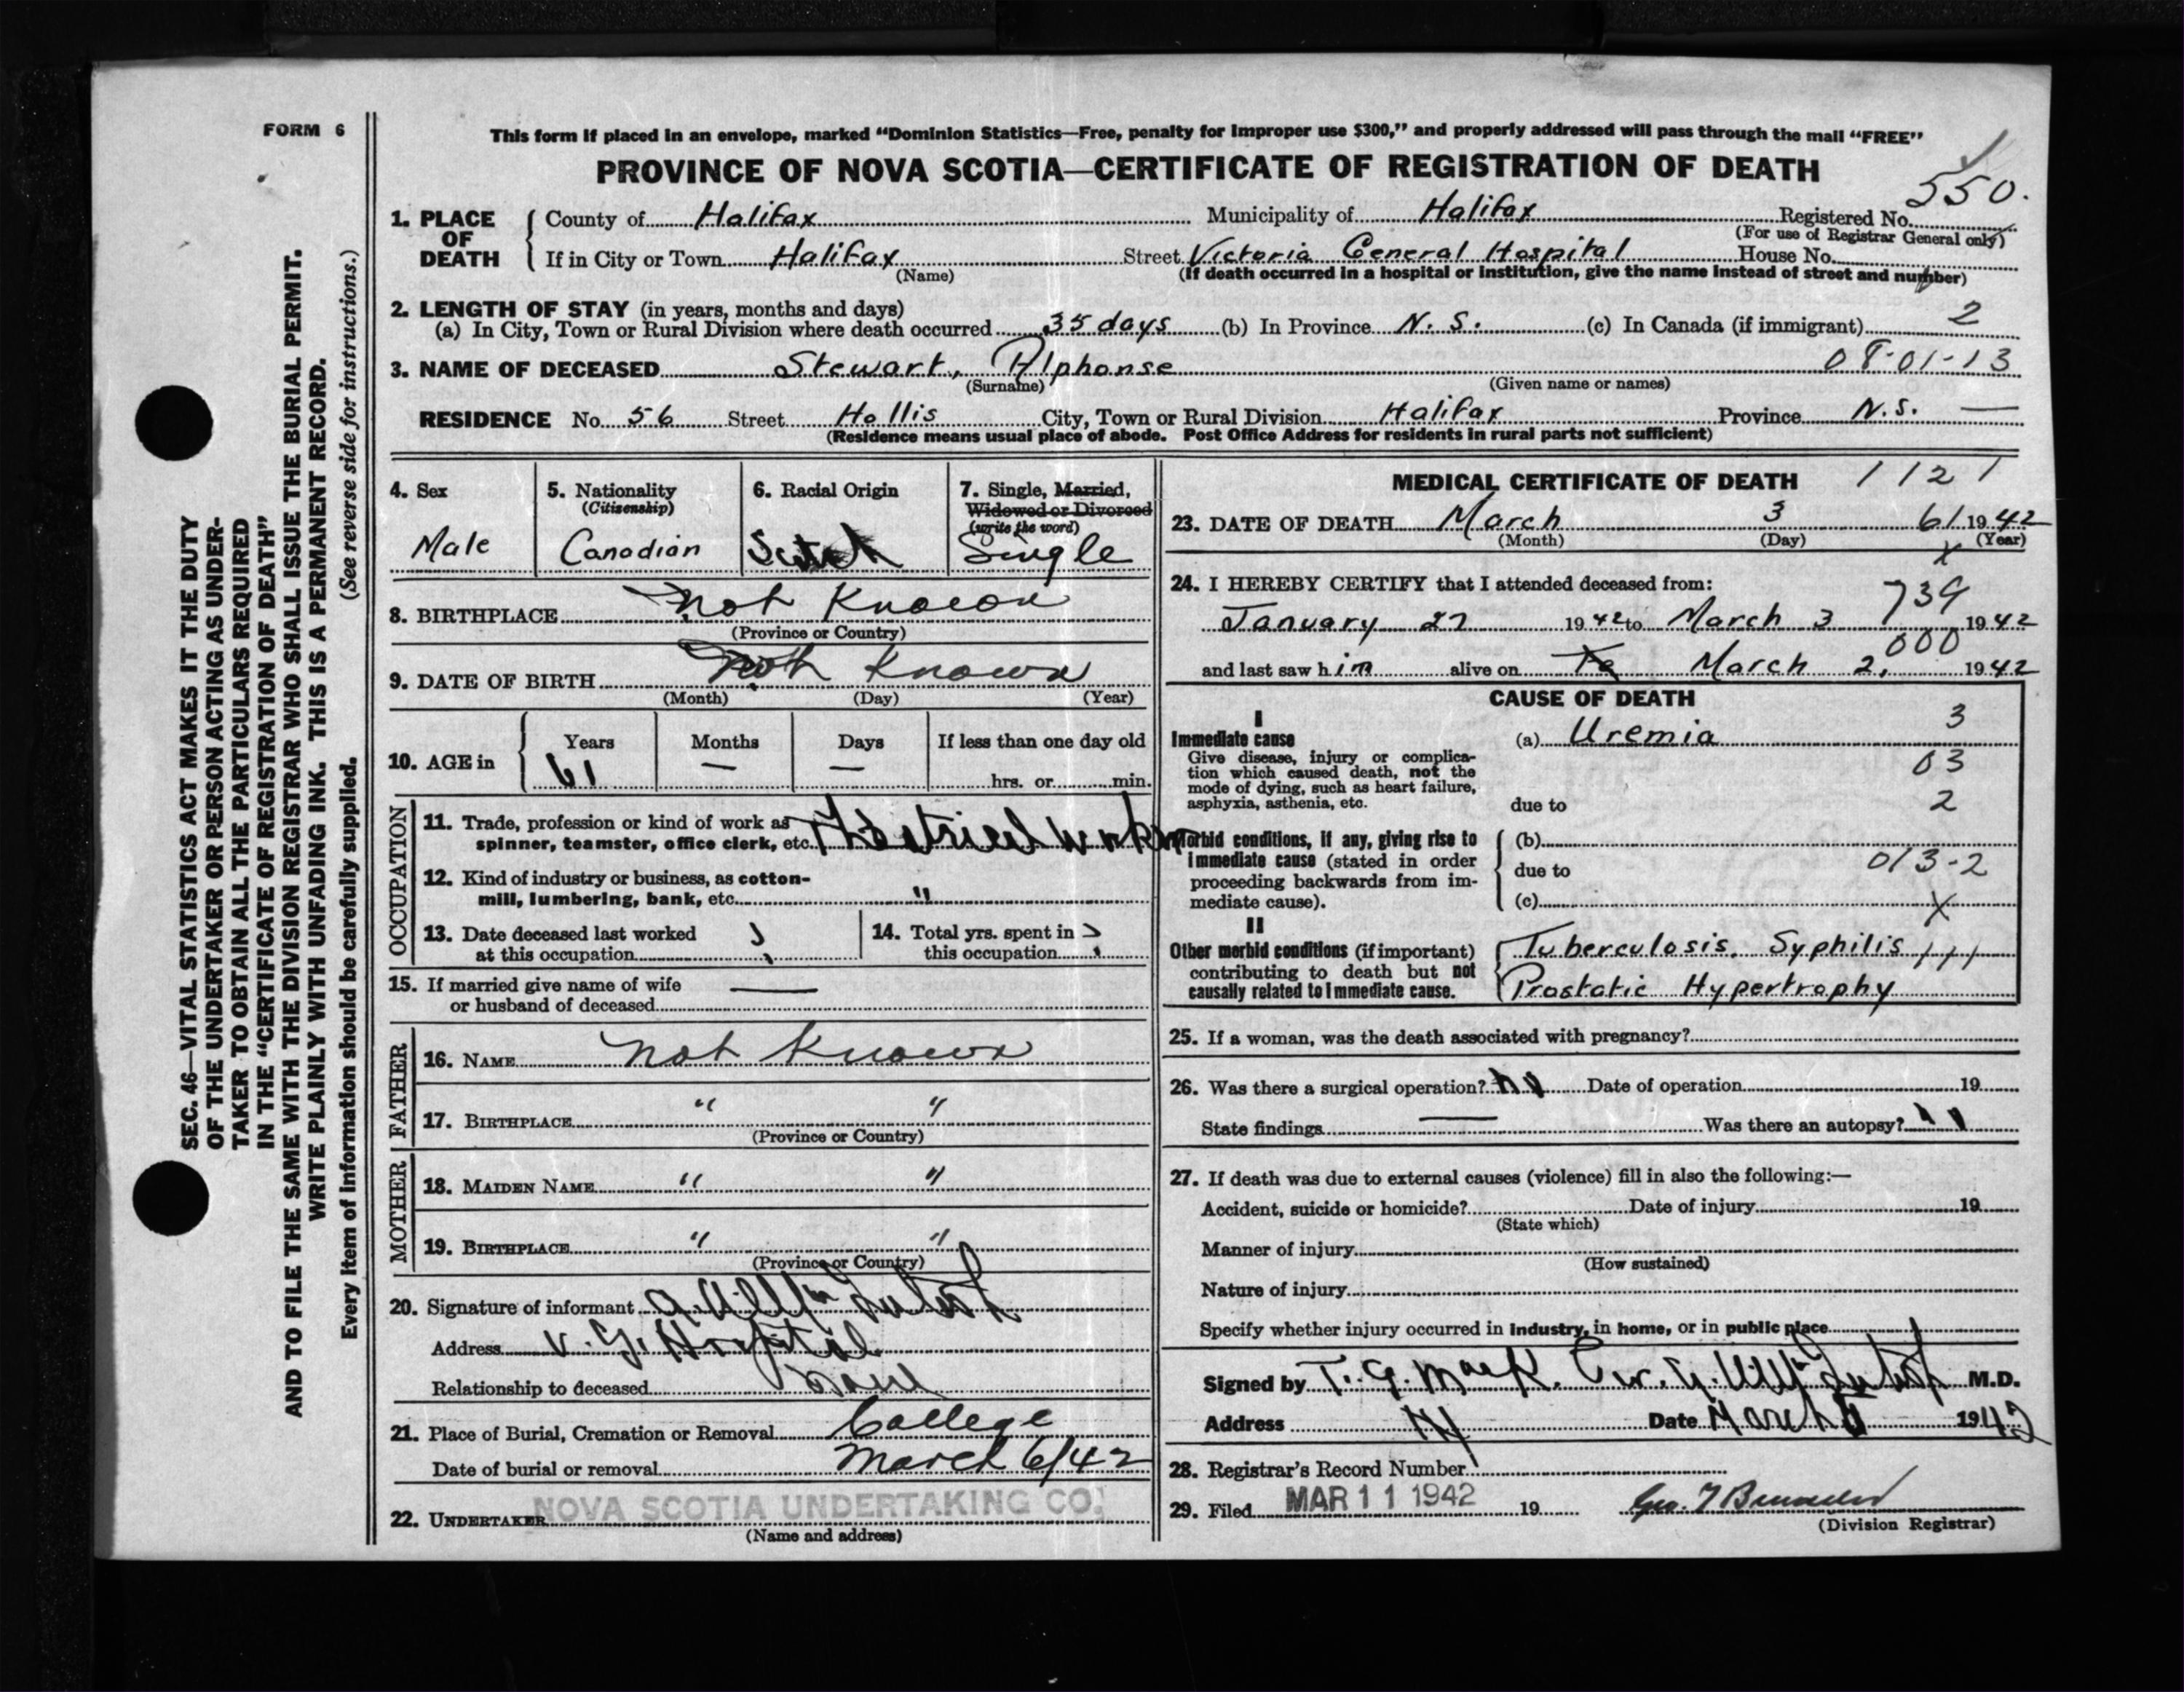 FORM 6
This form if placed in an envelope, marked “Dominion Statistics—Free, penalty for improper use $300,” and properly addressed will pass through the mail “FREE”
PROVINCE OF NOVA SCOTIA—CERTIFICATE OF REGISTRATION OF DEATH
550.
1. PLACE OF DEATH County of Halifax Municipality of Halifax Registered No.
(For use of Registrar General only)
If in City or Town Halifax Street Victoria General Hospital House No.
(Name) (If death occurred in a hospital or institution, give the name instead of street and number)
2. LENGTH OF STAY (in years, months and days)
(a) In City, Town or Rural Division where death occurred 35 days (b) In Province N. S. (c) In Canada (if immigrant) 2
3. NAME OF DECEASED Stewart, Alphonse 08-01-13
(Surname) (Given name or names)
RESIDENCE No. 56 Street Hollis City, Town or Rural Division Halifax Province N.S. —
(Residence means usual place of abode. Post Office Address for residents in rural parts not sufficient)
4. Sex 5. Nationality 6. Racial Origin 7. Single, Married,
(Citizenship) Widowed or Divorced
(write the word)
Male Canadian Scotch Single
8. BIRTHPLACE not Known
(Province or Country)
9. DATE OF BIRTH not Known
(Month) (Day) (Year)
10. AGE in Years Months Days If less than one day old
61 — — hrs. or min.
OCCUPATION
11. Trade, profession or kind of work as
spinner, teamster, office clerk, etc.
12. Kind of industry or business, as cotton-
mill, lumbering, bank, etc. "
13. Date deceased last worked 14. Total yrs. spent in
at this occupation this occupation
15. If married give name of wife —
or husband of deceased
FATHER
16. NAME not Known
17. BIRTHPLACE " "
(Province or Country)
MOTHER
18. MAIDEN NAME " "
19. BIRTHPLACE " "
(Province or Country)
20. Signature of informant
Address V. G. Hospital
Relationship to deceased
21. Place of Burial, Cremation or Removal College
Date of burial or removal March 6/42
22. UNDERTAKER NOVA SCOTIA UNDERTAKING CO.
(Name and address)
MEDICAL CERTIFICATE OF DEATH 1121
23. DATE OF DEATH March 3 61 1942
(Month) (Day) (Year)
x
24. I HEREBY CERTIFY that I attended deceased from:
739
January 27 1942 to March 3 1942
000
and last saw him alive on March 2, 1942
CAUSE OF DEATH
I
Immediate cause (a) Uremia 3
Give disease, injury or complica-
tion which caused death, not the 03
mode of dying, such as heart failure, 2
asphyxia, asthenia, etc. due to
Morbid conditions, if any, giving rise to (b)
immediate cause (stated in order due to 013-2
proceeding backwards from im-
mediate cause). (c) X
II
Other morbid conditions (if important) Tuberculosis, Syphilis
contributing to death but not
causally related to immediate cause. Prostatic Hypertrophy
25. If a woman, was the death associated with pregnancy?
26. Was there a surgical operation? no Date of operation 19
State findings — Was there an autopsy?
27. If death was due to external causes (violence) fill in also the following:—
Accident, suicide or homicide? Date of injury 19
(State which)
Manner of injury
(How sustained)
Nature of injury
Specify whether injury occurred in industry, in home, or in public place
Signed by T. G. Mack. M.D.
Address Date March 1942
28. Registrar's Record Number
29. Filed MAR 11 1942 19
(Division Registrar)
SEC. 46—VITAL STATISTICS ACT MAKES IT THE DUTY
OF THE UNDERTAKER OR PERSON ACTING AS UNDER-
TAKER TO OBTAIN ALL THE PARTICULARS REQUIRED
IN THE “CERTIFICATE OF REGISTRATION OF DEATH”
AND TO FILE THE SAME WITH THE DIVISION REGISTRAR WHO SHALL ISSUE THE BURIAL PERMIT.
WRITE PLAINLY WITH UNFADING INK. THIS IS A PERMANENT RECORD.
Every item of information should be carefully supplied. (See reverse side for instructions.)